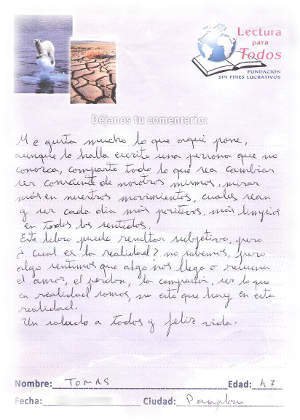 Lectura
para
Todos
FUNDACIÓN
SIN FINES LUCRATIVOS
Déjanos tu comentario:
Me gusta mucho lo que aqui pone,
aunque lo halla escrito una persona que no
conozca, comparto todo lo que sea cambiar
ser consciente de nosotros mismos, mirar
más en nuestros movimientos, cuales sean
y ser cada día más positivos, más limpios
en todos los sentidos.
Este libro puede resultar subjetivo, pero
¿cual es la realidad? no sabemos, pero
algo sentimos que algo nos llega o resuena
el amor, el perdón, la compartir, ser lo que
en realidad somos, no este que hay en esta
realidad.
Un saludo a todos y feliz vida.
Nombre: TOMAS Edad: 47
Fecha: Ciudad: Pamplona